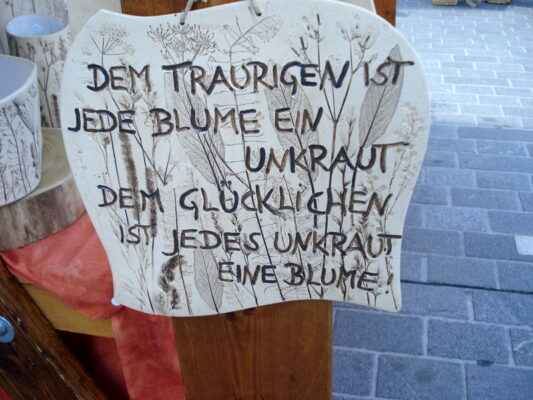 DEM TRAURIGEN IST
JEDE BLUME EIN
UNKRAUT
DEM GLÜCKLICHEN
IST JEDES UNKRAUT
EINE BLUME!